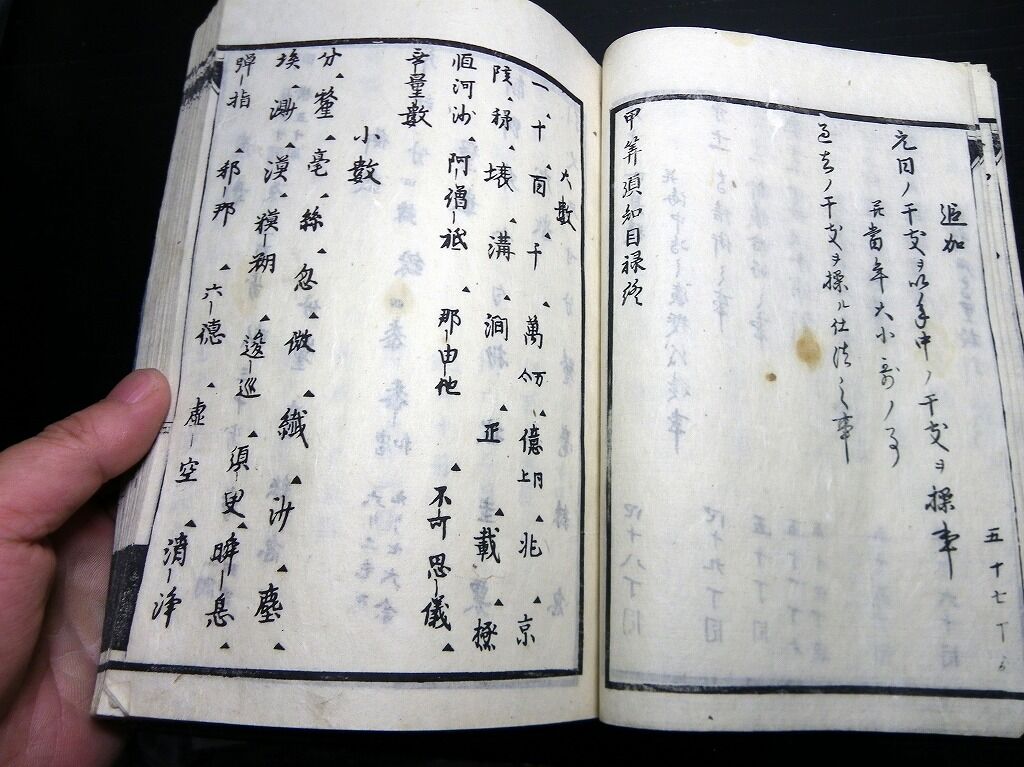 追加
元日ノ干支ヲ以年中ノ干支ヲ操事 五十七丁
當年大小哥ノ
ノ干支ヲ操ル仕法之事
甲算須知目禄終
大數
一、十、百、千▲萬▲億▲兆▲京
陔▲秭▲壌▲溝▲澗▲正▲載▲極
恒河沙▲阿僧祇▲那由他▲不可思儀▲
無量數
小數
分▲釐▲毫▲絲▲忽▲微▲纖▲沙▲塵▲
埃▲渺▲漠▲模朔▲逡巡▲須臾▲瞬息▲
弾指▲刹那▲六徳▲虚空▲清浄